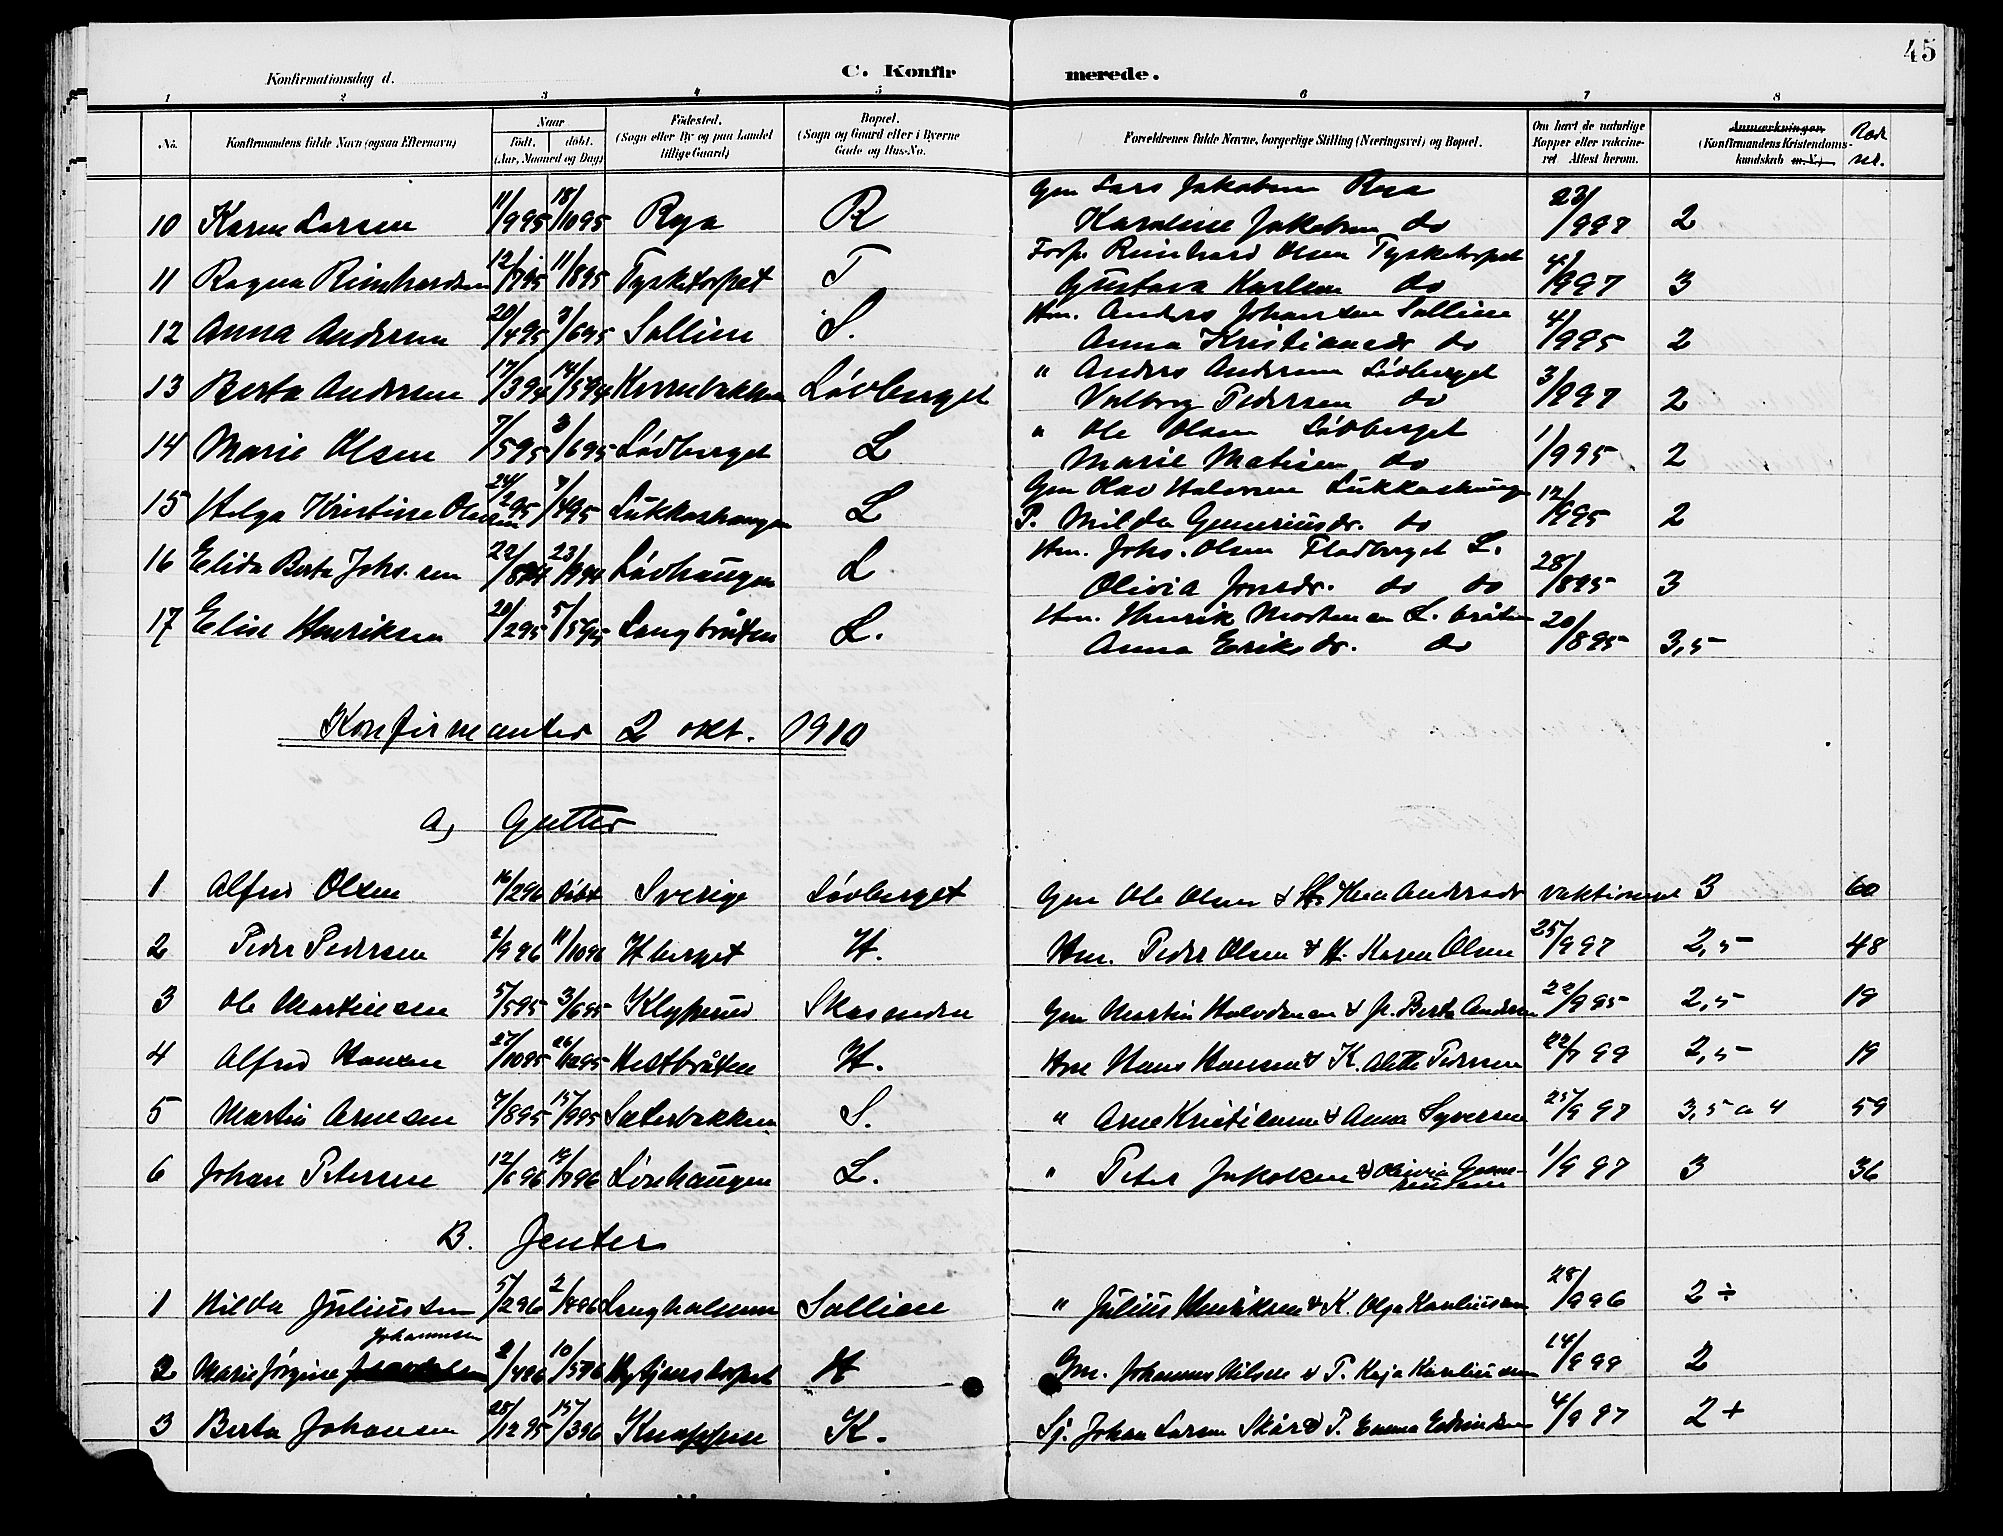 45
Konfirmationsdag d. C. Konfir merede.
1 2 3 4 5 6 7 8
No. Konfirmandens fulde Navn (ogsaa Efternavn) Naar født, døbt. (Aar, Maaned og Dag) Fødested. (Sogn eller By og paa Landet tillige Gaard) Bopæl. (Sogn og Gaard eller i Byerne Gade og Hus-No. Forældrenes fulde Navne, borgerlige Stilling (Næringsvei) og Bopæl. Om havt de naturlige Kopper eller vakcineret Attest herom. Anmærkninger (Konfirmandens Kristendomskundskab m. V.)
Gm Lars Jakobsen Rya
10 Karen Larsen 11/9 95 18/10 95 Rya R Karoline Jakobsen do 23/9 97 2
Forp. Reinhard Olsen Tysketorpet
11 Ragna Reinhardsen 12/7 95 11/8 95 Tysketorpet T Gustava Karlsen do 4/9 97 3
Hm. Anders Johansen Sollien
12 Anna Andersen 20/4 95 3/6 95 Sollien S. Anna Kristiansdr do 4/9 95 2
" Anders Andersen Løvberget
13 Berta Andersen 17/3 94 14/5 94 Løvberget Valborg Pedersen do 3/9 97 2
" Ole Olsen Løvberget
14 Marie Olsen 7/5 95 3/6 95 Løvberget L Marie Matisen do 1/9 95 2
Gm Olav Halvorsen
15 Helga Kristine Olavsen 24/2 95 7/4 95 L P. Milda Generiusdr. do 12/9 95 2
Hm. Johs. Olsen Flodberget L.
16 Elida Berta Johs.sen 22/8 94 23/9 94 Løvhaugen L Olivia Jonsdr. do do 28/8 95 3
Hm. Henrik Mortensen L. bråten
17 Elise Henriksen 20/2 95 5/5 95 Langbråten L. Anna Eriksdr. do 20/8 95 3,5
Konfirmanter 2 okt. 1910
A, Gutter
1 Alfred Olsen 16/2 96 døbt Sverige Løvberget Gm Ole Olsen & Andersdr 3 60
2 Peder Pedersen 2/9 96 11/10 96 H berget H. Hm. Peder Olsen & H. Karen Olsen 25/9 97 2,5 48
3 Ole Martinsen 5/5 95 3/6 95 Klykerud Skasenden Gm Martin Halvorsen & Berta Andersen 22/9 95 2,5 19
4 Alfred Hansen 27/10 95 26/12 95 Hestbråten H. Hm Hans Hansen & K. Alette Pedersen 22/9 99 2,5 19
5 Martin Arnesen 7/8 95 15/9 95 Sæterbakken S. " Arne Kristiansen & Anna Syversen 25/9 97 3,5 a 4 59
6 Johan Petersen 12/6 96 14/7 96 Løvhaugen L. " Peter Jakobsen & Olivia Generiusen 1/9 97 3 36
B. Jenter
1 Hilda Juliussen 5/2 96 2/4 96 Langholmen Sollien " Julius Henriksen & K. Olga Karliusen 28/9 96 2 ÷
Johannsen
2 Marie Jørgine 2/4 96 10/5 96 H Gm. Johannes Nilsen & P. Kaja Karliussen 14/9 99 2
3 Berta Johansen 28/12 95 15/3 96 Knappen K. Sj. Johan Larsen Skård P. Emma Edvindsen 4/9 97 2+